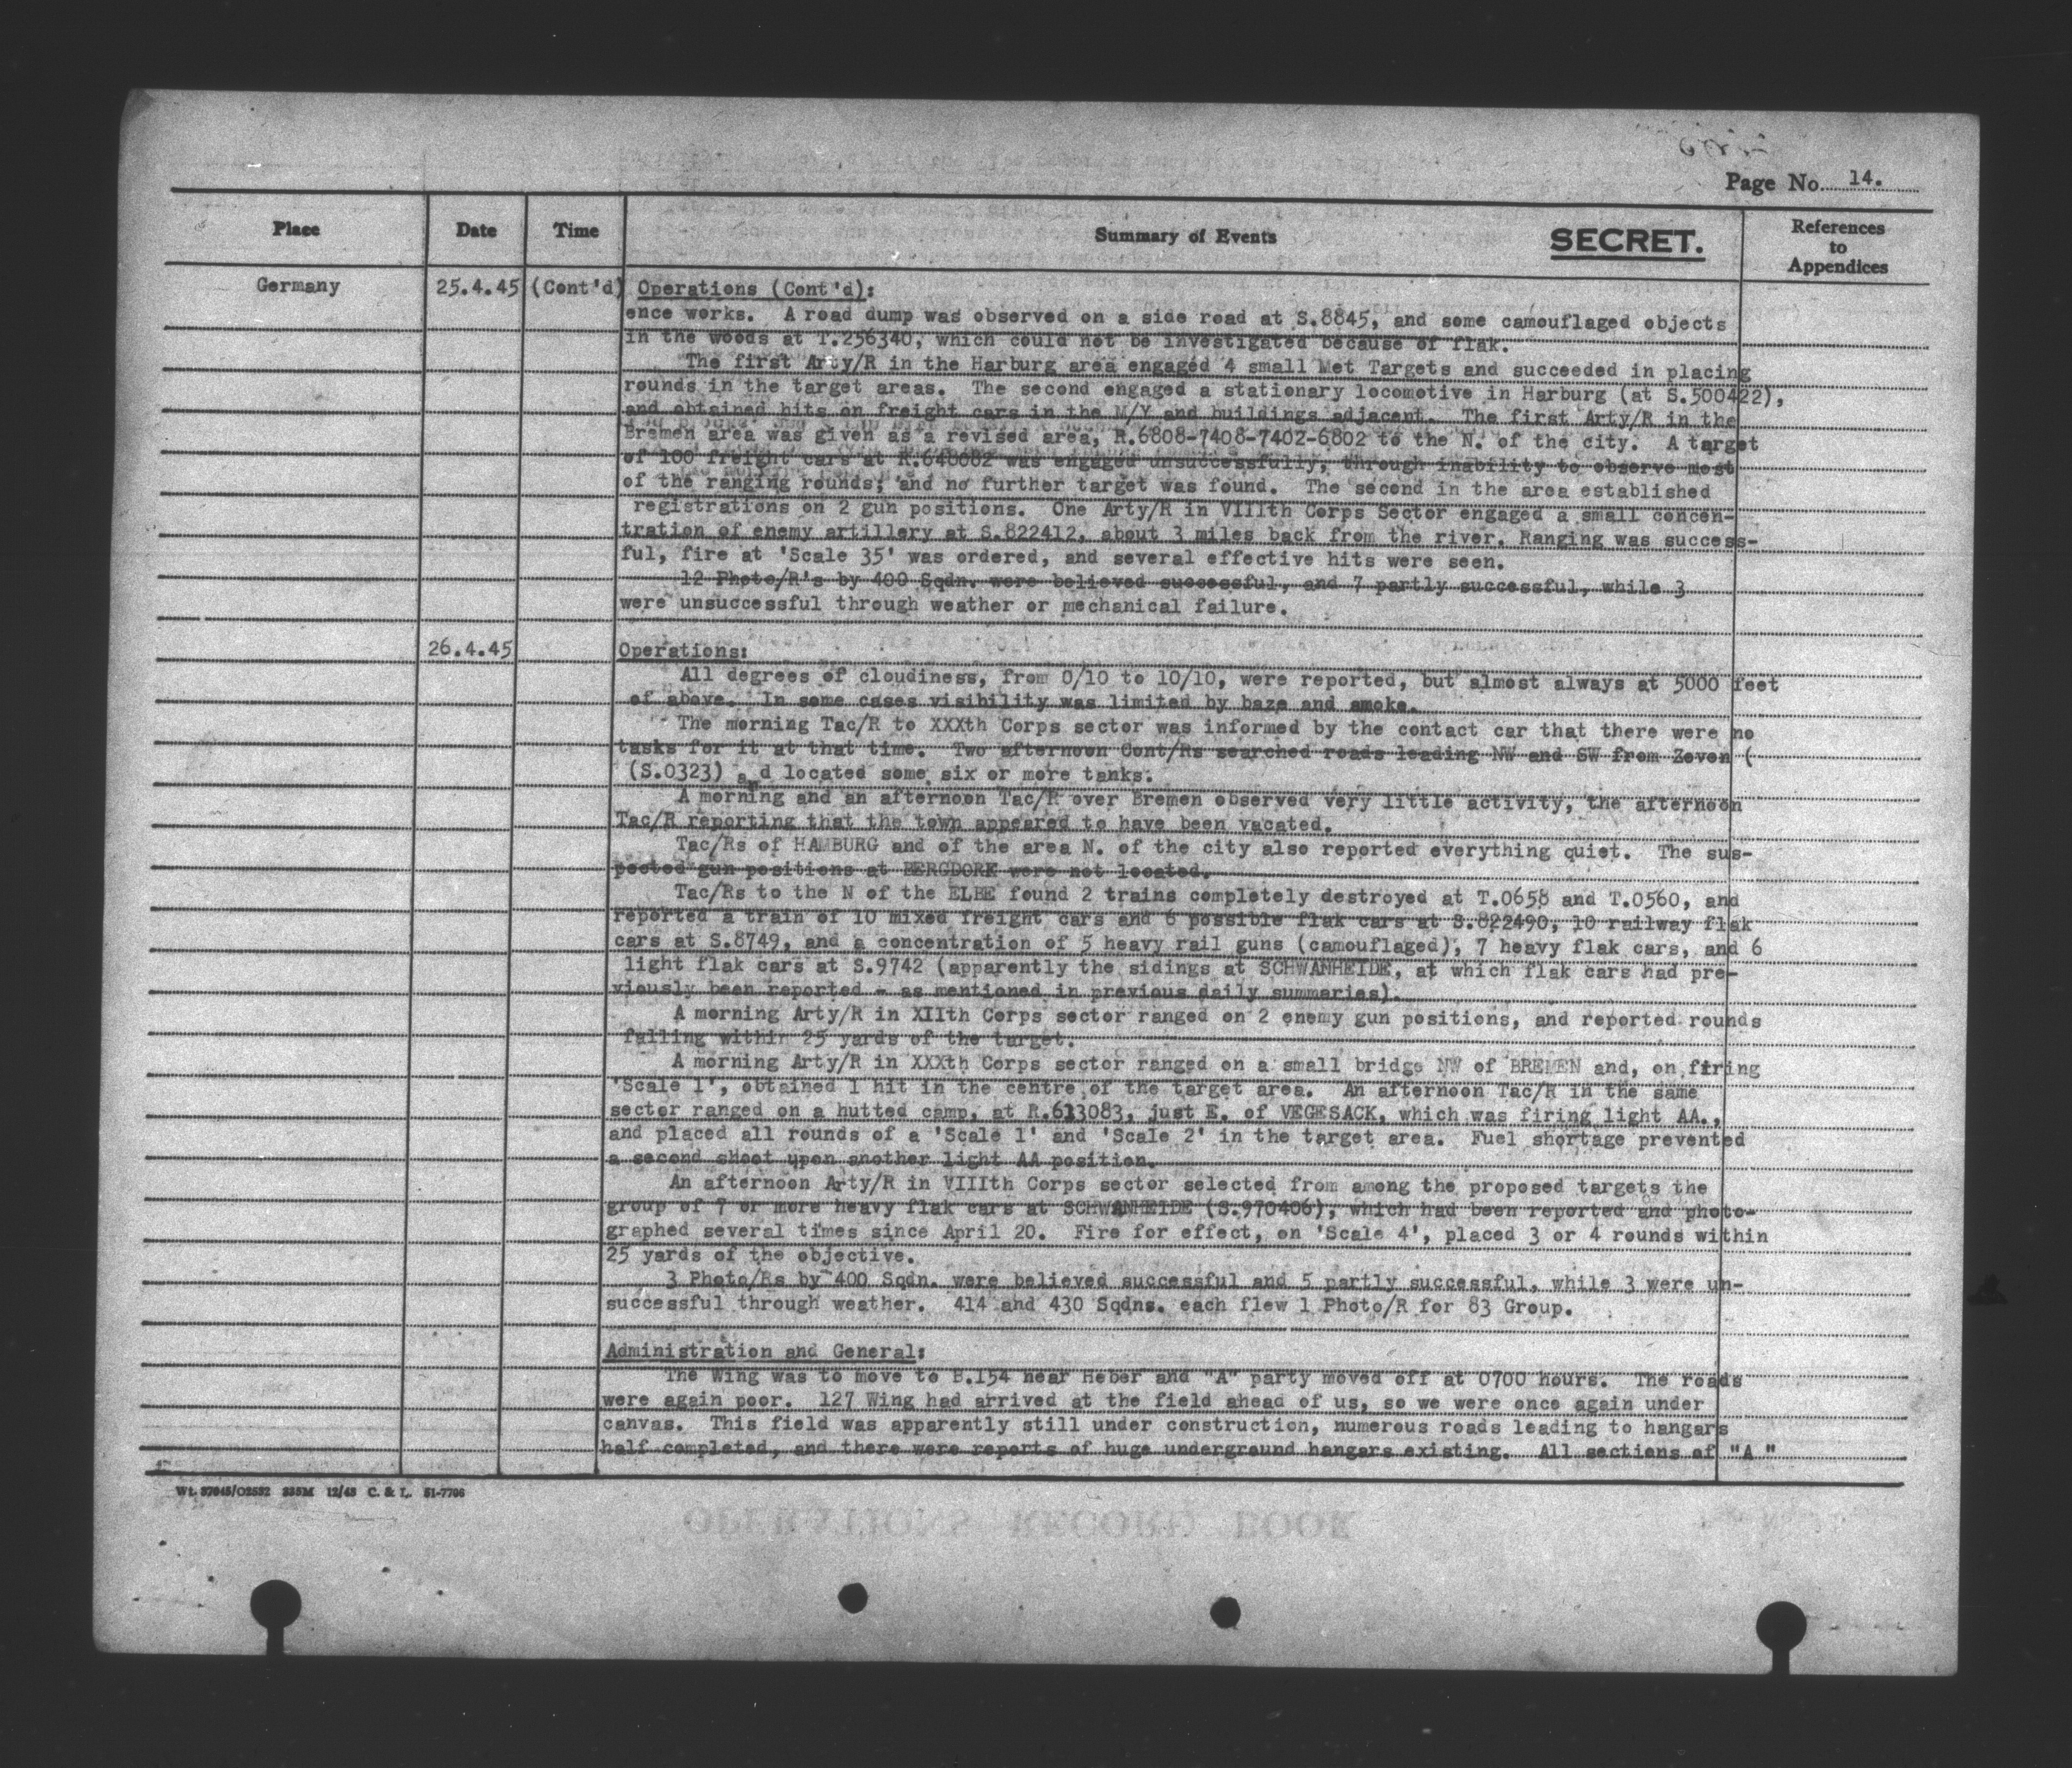 Page No. 14.
Place Date Time Summary of Events SECRET. References to Appendices
Germany 25.4.45 (Cont'd) Operations (Cont'd):
ence works. A road dump was observed on a side road at S.8845, and some camouflaged objects
in the woods at T.256340, which could not be investigated because of flak.
The first Arty/R in the Harburg area engaged 4 small Met Targets and succeeded in placing
rounds in the target areas. The second engaged a stationary locomotive in Harburg (at S.500422),
and obtained hits on freight cars in the M/Y and buildings adjacent. The first Arty/R in the
Bremen area was given as a revised area, R.6808-7408-7402-6802 to the N. of the city. A target
of 100 freight cars at R.640082 was engaged unsuccessfully, through inability to observe most
of the ranging rounds; and no further target was found. The second in the area established
registrations on 2 gun positions. One Arty/R in VIIIth Corps Sector engaged a small concen-
tration of enemy artillery at S.822412, about 3 miles back from the river. Ranging was success-
ful, fire at 'Scale 35' was ordered, and several effective hits were seen.
12 Photo/R's by 400 Sqdn. were believed successful, and 7 partly successful, while 3
were unsuccessful through weather or mechanical failure.
26.4.45 Operations:
All degrees of cloudiness, from 0/10 to 10/10, were reported, but almost always at 5000 feet
of above. In some cases visibility was limited by haze and smoke.
The morning Tac/R to XXXth Corps sector was informed by the contact car that there were no
tasks for it at that time. Two afternoon Cont/Rs searched roads leading NW and SW from Zeven (
(S.0323) and located some six or more tanks.
A morning and an afternoon Tac/R over Bremen observed very little activity, the afternoon
Tac/R reporting that the town appeared to have been vacated.
Tac/Rs of HAMBURG and of the area N. of the city also reported everything quiet. The sus-
pected gun positions at BERGDORF were not located.
Tac/Rs to the N of the ELBE found 2 trains completely destroyed at T.0658 and T.0560, and
reported a train of 10 mixed freight cars and 6 possible flak cars at S.822490, 10 railway flak
cars at S.8749, and a concentration of 5 heavy rail guns (camouflaged), 7 heavy flak cars, and 6
light flak cars at S.9742 (apparently the sidings at SCHWANHEIDE, at which flak cars had pre-
viously been reported - as mentioned in previous daily summaries).
A morning Arty/R in XIIth Corps sector ranged on 2 enemy gun positions, and reported rounds
falling within 25 yards of the target.
A morning Arty/R in XXXth Corps sector ranged on a small bridge NW of BREMEN and, on firing
'Scale 1', obtained 1 hit in the centre of the target area. An afternoon Tac/R in the same
sector ranged on a hutted camp, at R.613083, just E. of VEGESACK, which was firing light AA.,
and placed all rounds of a 'Scale 1' and 'Scale 2' in the target area. Fuel shortage prevented
a second shoot upon another light AA position.
An afternoon Arty/R in VIIIth Corps sector selected from among the proposed targets the
group of 7 or more heavy flak cars at SCHWANHEIDE (S.970406), which had been reported and photo-
graphed several times since April 20. Fire for effect, on 'Scale 4', placed 3 or 4 rounds within
25 yards of the objective.
3 Photo/Rs by 400 Sqdn. were believed successful and 5 partly successful, while 3 were un-
successful through weather. 414 and 430 Sqdns. each flew 1 Photo/R for 83 Group.
Administration and General:
The Wing was to move to B.154 near Heber and "A" party moved off at 0700 hours. The roads
were again poor. 127 Wing had arrived at the field ahead of us, so we were once again under
canvas. This field was apparently still under construction, numerous roads leading to hangars
half completed, and there were reports of huge underground hangars existing. All sections of "A"
12/43 C. & L. 51-7706
OPERATIONS RECORD BOOK